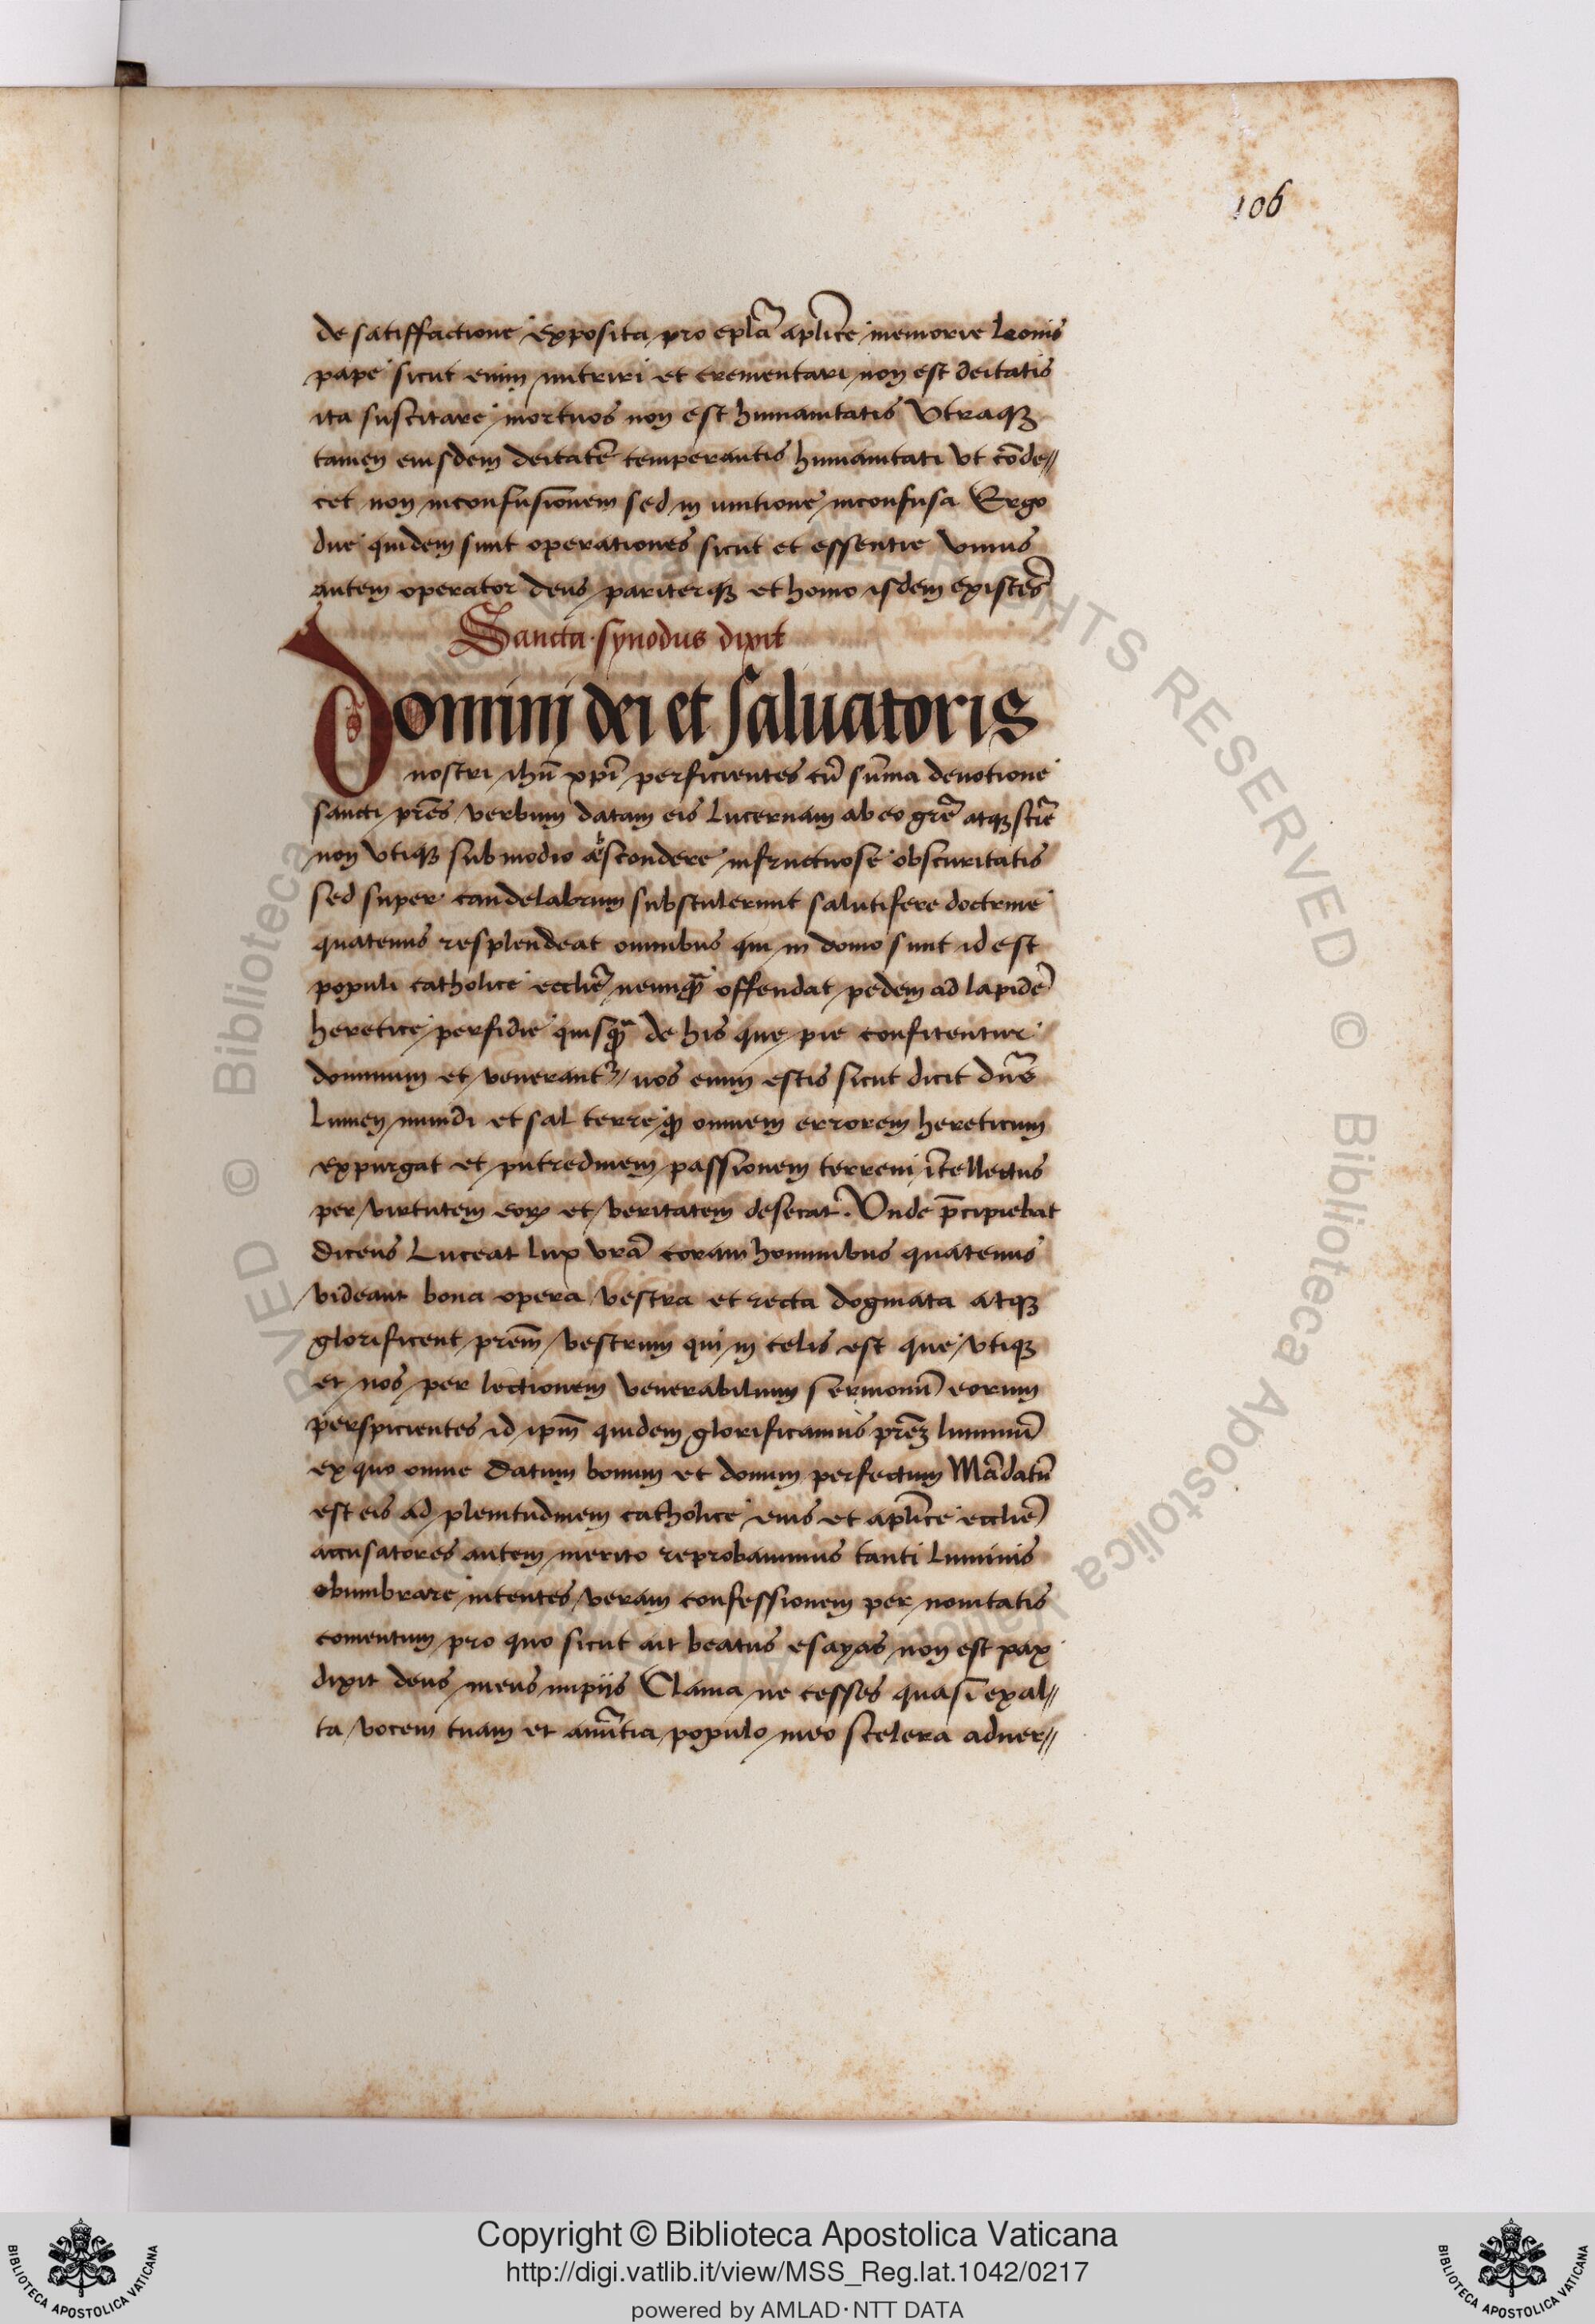 106
de satiffactione exposita pro epl̃a aplic̃e memorie Leonis
pape sicut enim nutriri et crementari non est deitatis
ita suscitare mortuos non est humanitatis Vtraqꝫ
tamen eiusdem deitatē temperantis humanitati vt cōde//
cet non inconfusionem sed in vnitione inconfusa Ergo
due quidem sunt operationes sicut et essentie vnius
autem operator deus pariterqꝫ et homo isdem existēs
Sancta synodus dixit
Domini dei et saluatoris
nostri ihū xpī perficientes cū sūma deuotione
sancti pr̄es verbum datam eis Lucernam ab eo gr̃e atqꝫ sc̃ie
non vtiqꝫ sub modio abscondere infructuose obscuritatis
sed super candelabrum substulerunt salutifere doctrine
quatenus resplendeat omnibus qui in domo sunt id est
populi catholice eccliẽ neunq̃ offendat pedem ad lapidē
heretice perfidie quisq̃ de his que pie confitentur
dominum et venerantᷣ uos enim estis sicut dicit dñs
Lumen mundi et sal terre ꝙ omnem errorem hereticum
expurgat et putredinem passionem terreni ītellectus
per virtutem eoꝝ et veritatem desecat. Vnde p̄cipiebat
dicens Luceat lux vr̄a coram hominibus quatenus
videant bona opera vestra et recta dogmata atqꝫ
glorificent pr̄em vestrum qui in celis est que vtiqꝫ
et nos per lectionem venerabilium sermonū eorum
perspicientes id ip̄m quidem glorificamus pr̄eꝫ luminū
ex quo omne datum bonum et donum perfectum Mādatū
est eis ad plenitudinem catholice eius et aplic̃e eccliẽ
accusatores autem merito reprobauimus tanti luminis
obumbrare nitentes veram confessionem per nouitatis
comentum pro quo sicut ait beatus esayas non est pax
dixit deus meus impijs Clama ne cesses quasi exal//
ta vocem tuam et anūtia populo meo scelera aduer//
Copyright © Biblioteca Apostolica Vaticana
http://digi.vatlib.it/view/MSS_Reg.lat.1042/0217
powered by AMLAD·NTT DATA
BIBLIOTECA APOSTOLICA VATICANA
BIBLIOTECA APOSTOLICA VATICANA